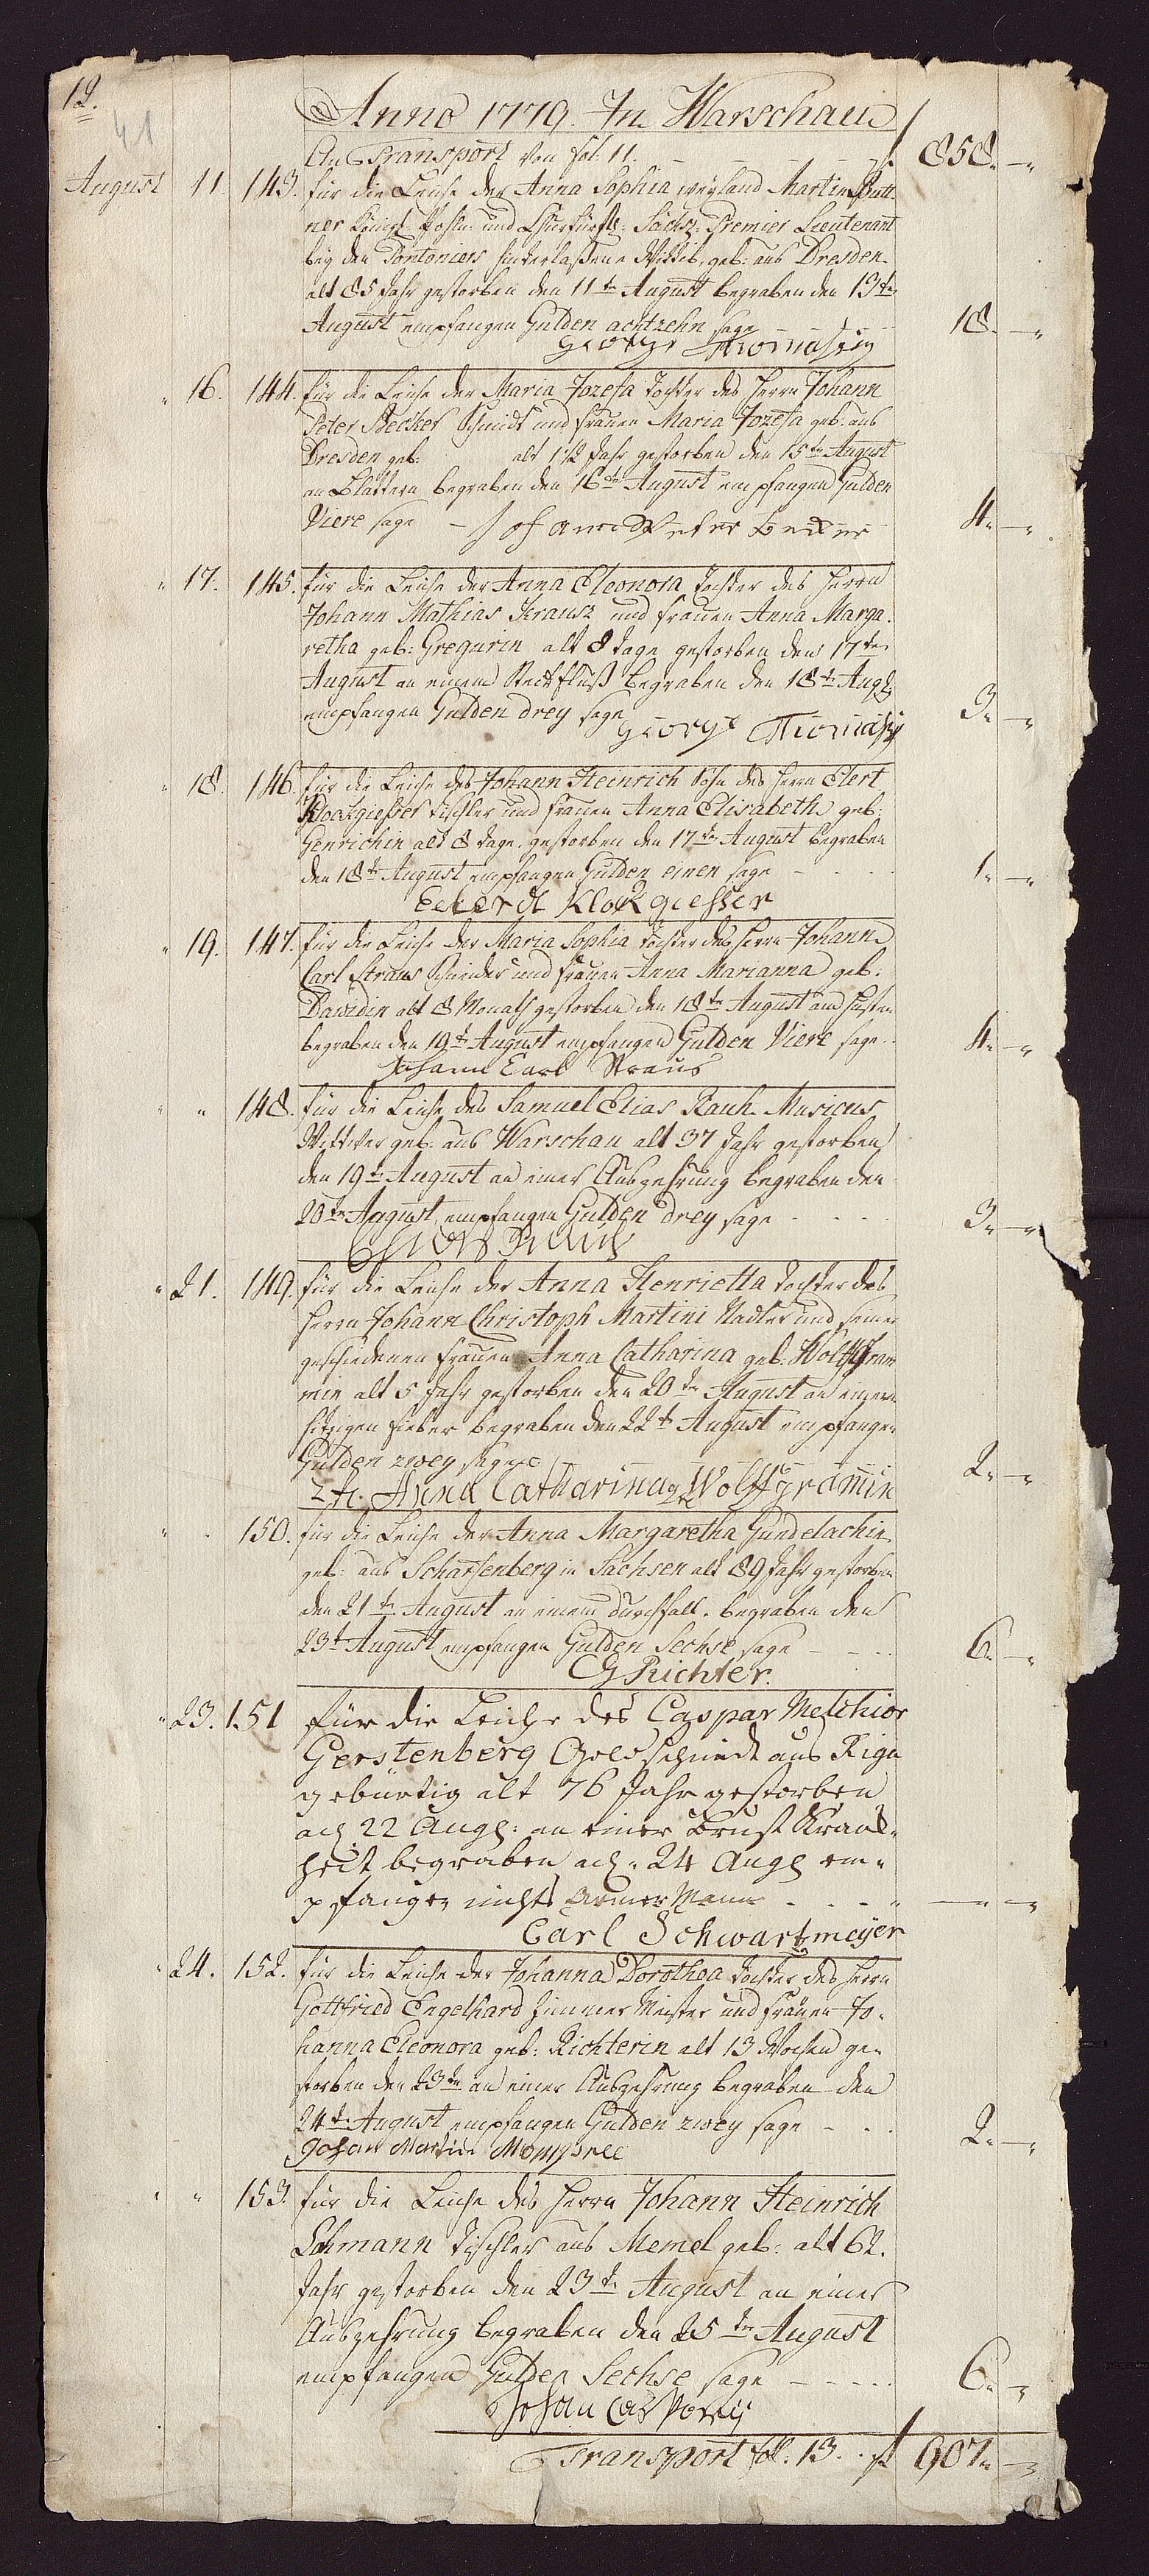 12.
41
Anno 1779. In Warschau
An Transport von fol: 11. f 858.
August 11. 143. für die Leiche der Anna Sophia weyland Martin Butt
ner Königl: Pohln: und Churfürstl: Sächs: Premier Lieutenant
bey den Pontoniers hinterlaßene Wittib, geb: aus Dresden
alt 85 Jahr gestorben den 11ten August begraben den 13ten
August empfangen Gulden achtzehn sage 18.
George Thomaßen
" 16. 144. für die Leiche der Maria Jozefa Tochter des Herrn Johann
Peter Becker Schmidt und Frauen Maria Jozefa geb: aus
Dresden geb: alt 1 1/2 Jahr gestorben den 15ten August
an Blattern begraben den 16ten August empfangen Gulden
Viere sage 4.
Johann Peter Becker
" 17. 145. für die Leiche der Anna Eleonora Tochter des Herrn
Johann Mathias Krausz und Frauen Anna Marga
retha geb: Gregurin alt 8 Tage gestorben den 17ten
August an einem Steckfluß begraben den 18ten Aug:
empfangen Gulden drey sage 3.
George Thomaßen
" 18. 146. für die Leiche des Johann Heinrich Sohn des Herrn Elert
Klockgießer Tischler und Frauen Anna Elisabeth geb:
Genrichin alt 8 Tage. gestorben den 17ten August begraben
den 18ten August empfangen Gulden einen sage 1.
Elerdt Klokgiesser
" 19. 147. für die Leiche der Maria Sophia Tochter des Herrn Johann
Carl Straus Schneider und Frauen Anna Marianna geb:
Dawidin alt 8 Monath gestorben den 18ten August am Husten
begraben den 19ten August empfangen Gulden Viere sage 4.
Johann Carl Straus
" " 148. für die Leiche des Samuel Elias Rauh Musicus
Wittwer geb: aus Warschau alt 37 Jahr gestorben
den 19ten August an einer Auszehrung begraben den
20ten August, empfangen Gulden drey sage 3.
" 21. 149. für die Leiche der Anna Henrietta Tochter des
Herrn Johann Christoph Martini Nadler und seiner
geschiedenen Frauen Anna Catharina geb: Wolffgram
min alt 5 Jahr gestorben den 20ten August an einem
hitzigen Fieber begraben den 22ten August empfangen
Gulden zwey sage 2.
Anna Catharina Wolffgramin
" " 150. für die Leiche der Anna Margaretha Gundelachin
geb: aus Scharfenberg in Sachsen alt 89 Jahr gestorben
den 21ten August an einem Durchfall. begraben den
23t August empfangen Gulden Sechse sage 6.
CG Richter.
" 23. 151 für die Leiche des Caspar Melchior
Gerstenberg Goldschmidt aus Riga
gebürtig alt 76 Jahr gestorben
22 Aug: an einer Brust Krank
heit begraben 24 Aug em
pfangen nichts armer Mann
Carl Schwartzmeyer
" 24. 152. für die Leiche der Johanna Dorothea Tochter des Herrn
Gottfried Engelhard Zimmer Meister und Frauen Jo
hanna Eleonora geb: Richterin alt 13 Wochen ge
storben den 23ten an einer Auszehrung begraben den
24ten August empfangen Gulden zwey sage 2.
Johan Martin
" " 153. für die Leiche des Herrn Johann Heinrich
Lehmann Tischler aus Memel geb: alt 62.
Jahr gestorben den 23ten August an einer
Auszehrung begraben den 25ten August
empfangen Gulden Sechse sage 6.
Johan
Transport fol: 13. f 907.